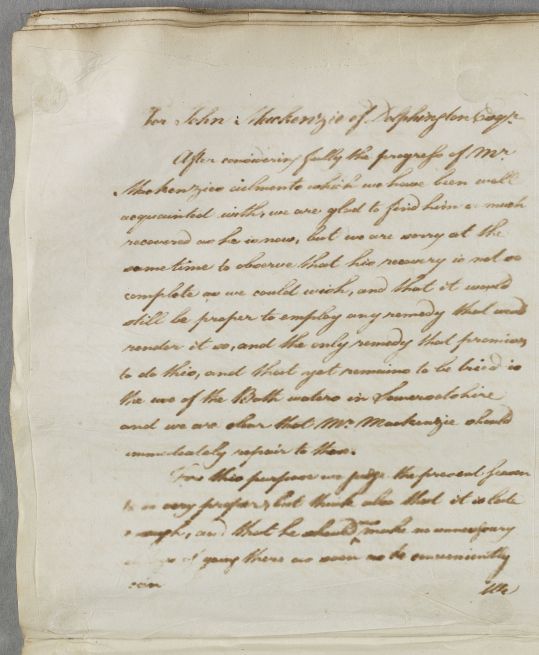 For John Mackenzie of Dolphington Esqr.
After considering fully the progress of Mr.
Mackenzies ailments which we have been well
acquainted with, we are glad to find him so much
recovered as he is now, but we are sorry at the
same time to observe that his recovery is not so
complete as we could wish, and that it would
still be proper to employ any remedy that would
render it so, and the only remedy that promises
to do this, and that yet remains to be tried is
the use of the Bath waters in Somersetshire
and we are clear that Mr. Mackenzie should
immediately repair to them.
For this purpose we judge the present Season
to be very proper, but think also that it is late
enough, and that he should make no unnecessary
of going there as soon as he conveniently
can
We